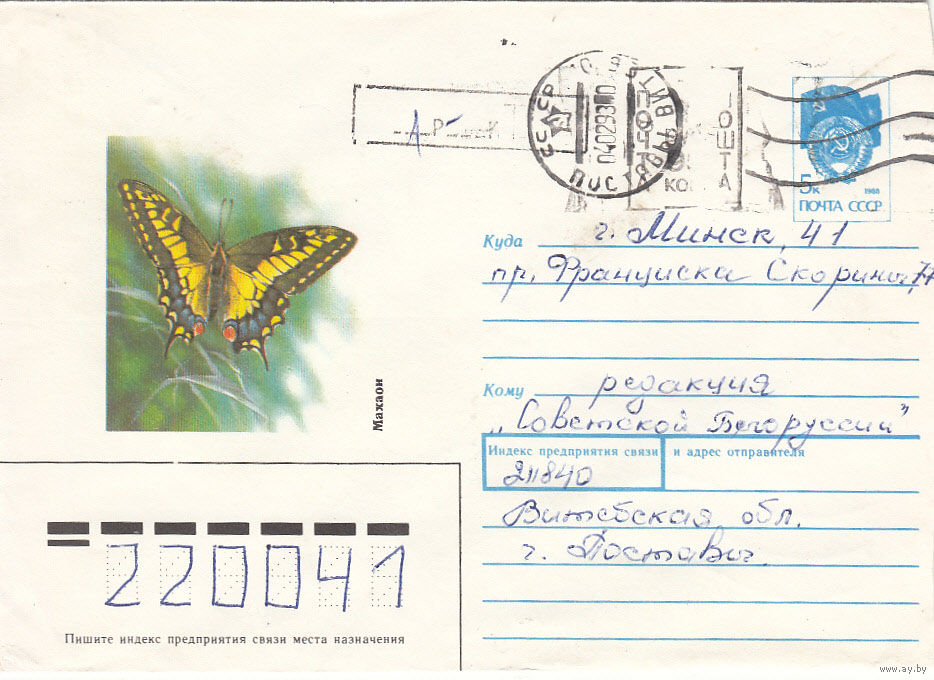 СССР ПОСТАВЫ ВИТЕБ
040293
ПОЧТА
5к 1988
ПОЧТА СССР
Куда г. Минск, 41
пр. Франциска Скорины, 77
Кому редакция
„Советской Белоруссии"
Индекс предприятия связи и адрес отправителя
211840
Витебская обл.
г. Поставы
Махаон
220041
Пишите индекс предприятия связи места назначения
www.ay.by